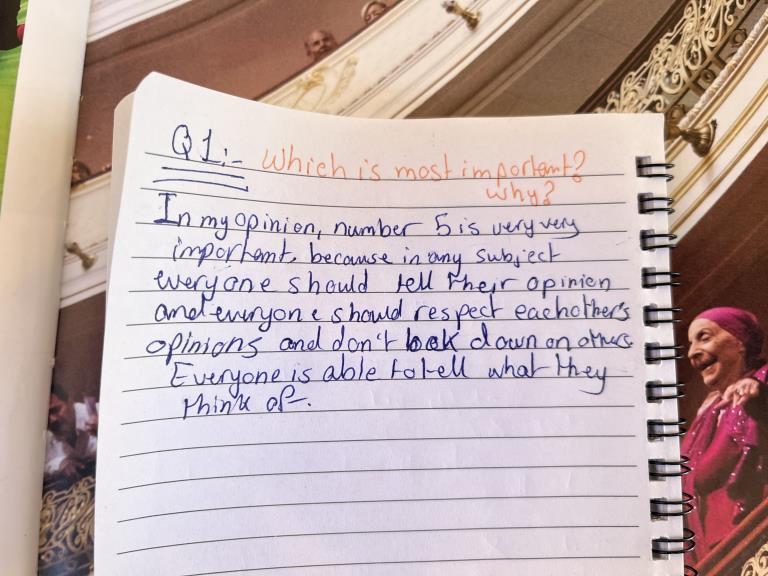 Q1:- Which is most important?
why?
In my opinion, number 5 is very very
important, because in any subject
everyone should tell their opinion
and everyone should respect eachother's
opinions and don't look down on others.
Everyone is able to tell what they
think of.